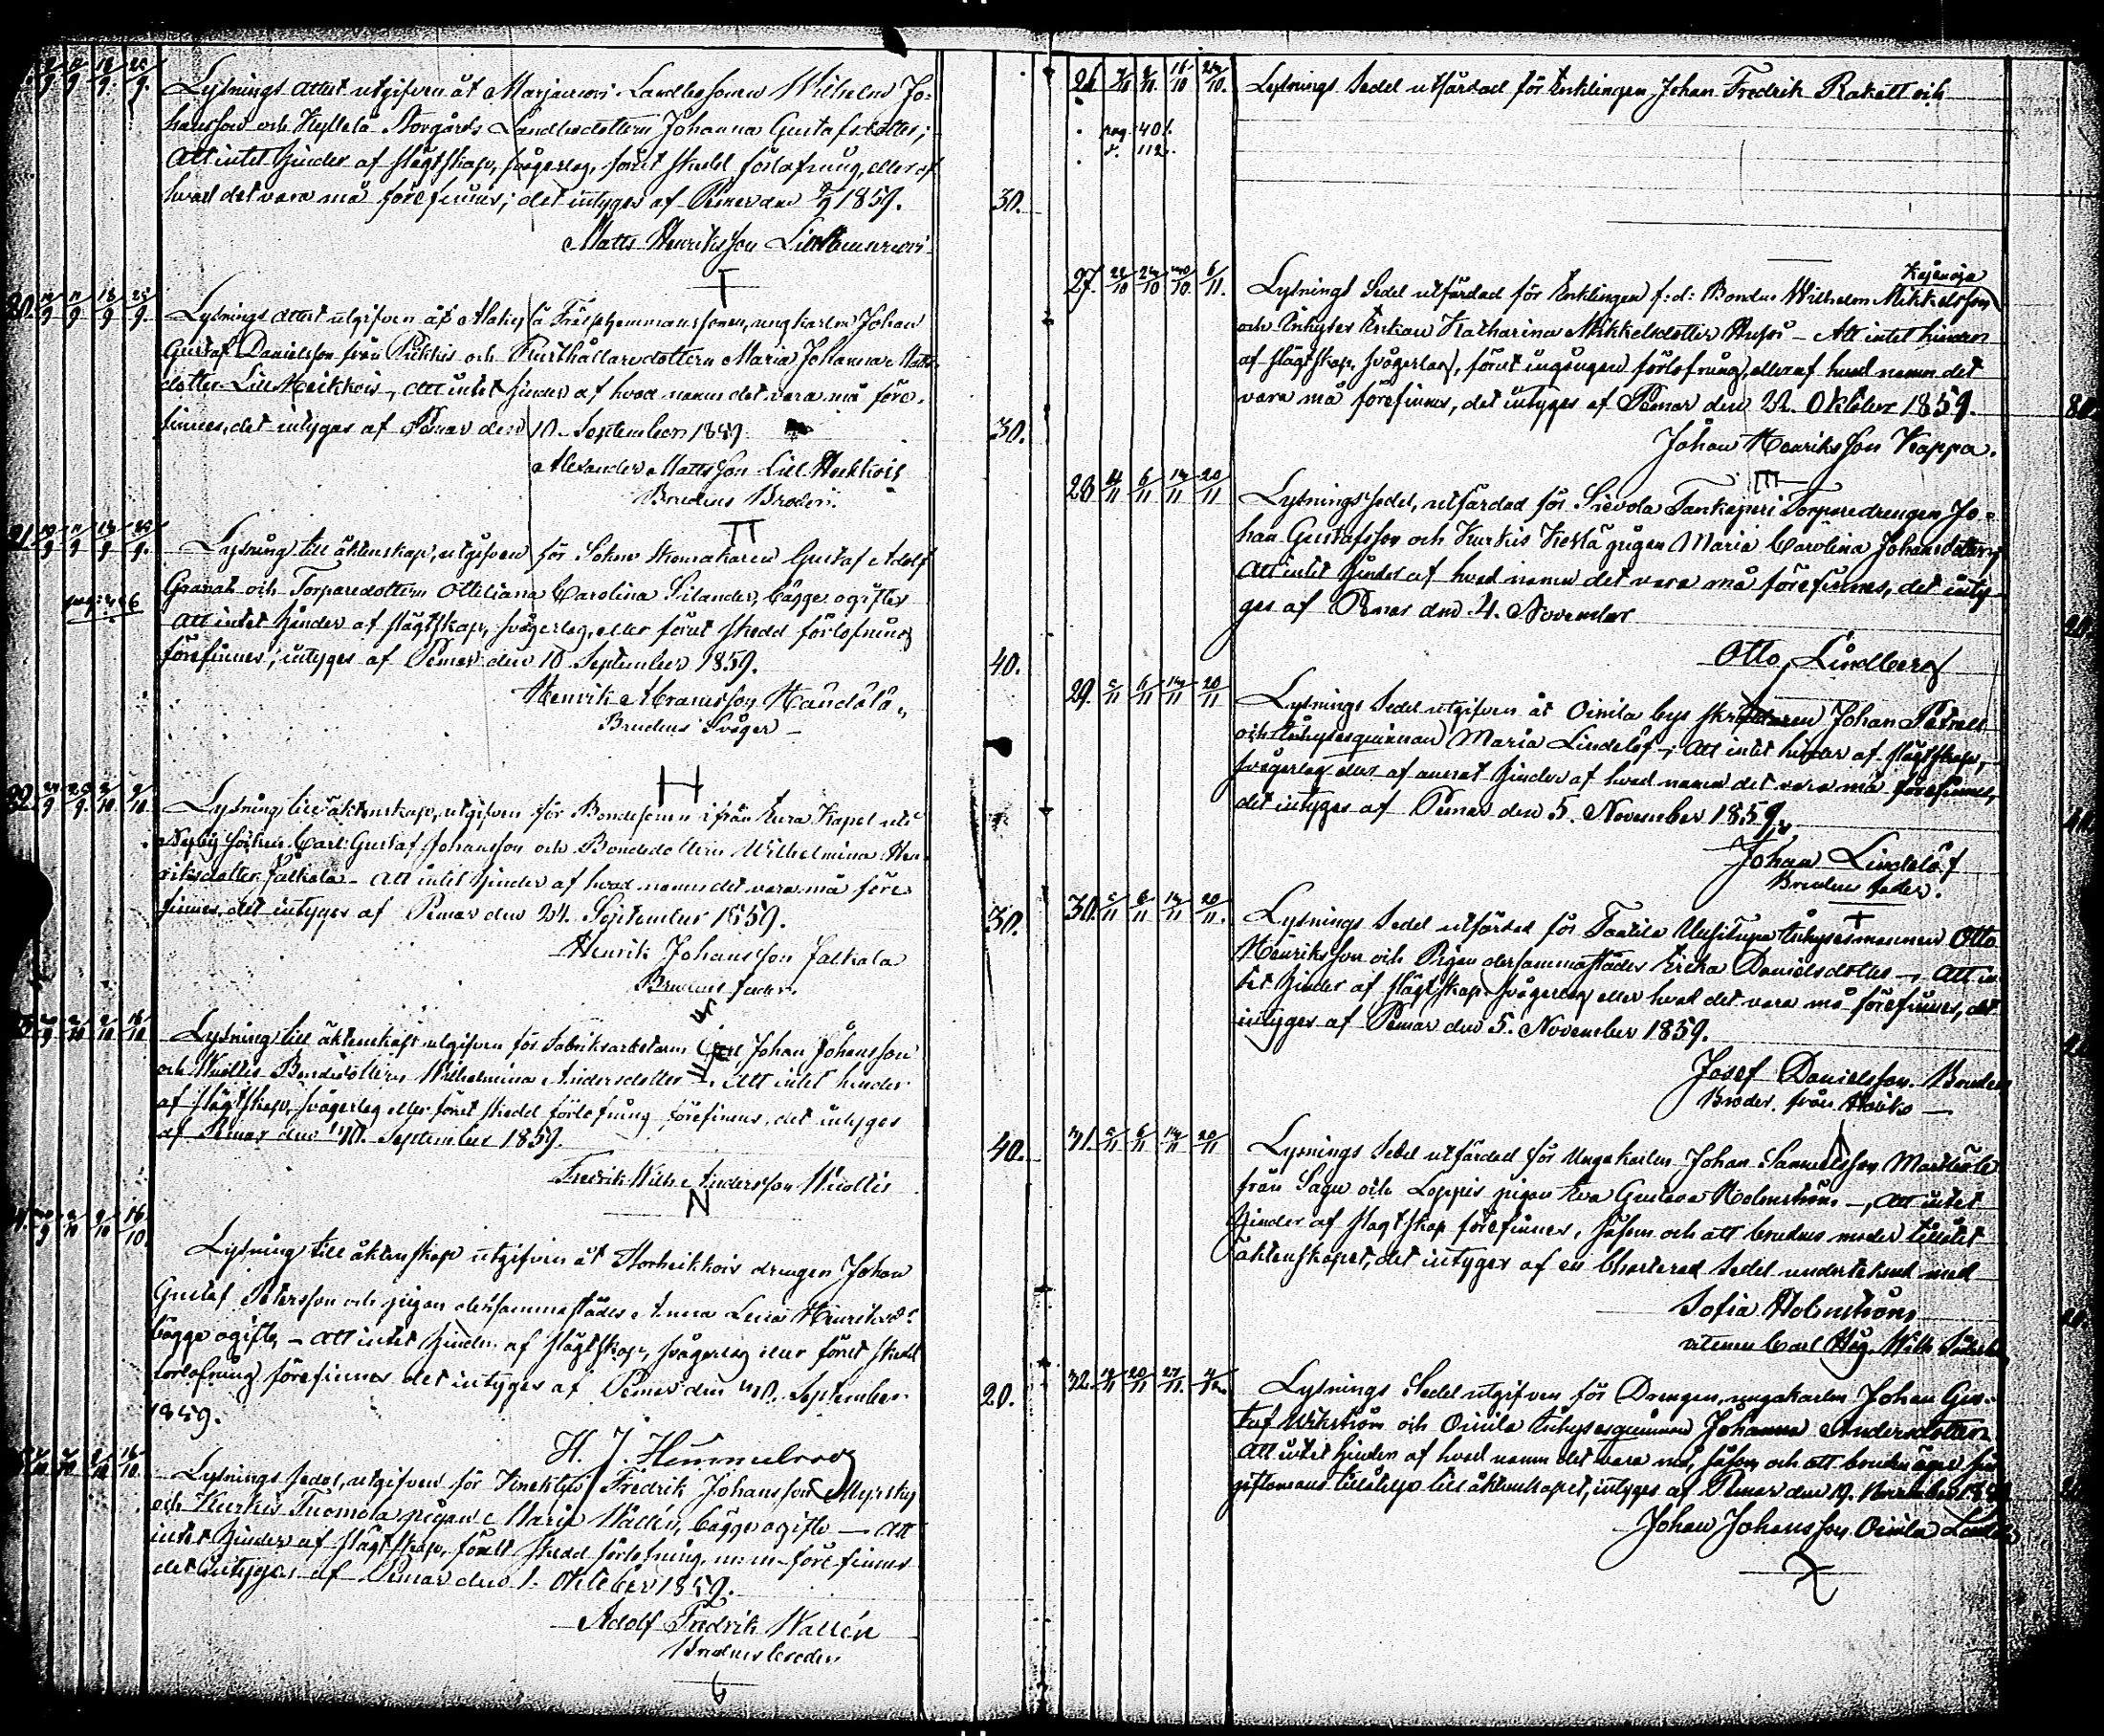 9/9 11/9 18/9 25/9.
Lysnings attest utgifven åt Marjaniemi Landbosonen Wilhelm Jo-
hansson och Kyllelä Storgårds Landbodottern Johanna Gustafsdotter;
Att intet hinder af slägtskap, svågerlag, förut skedd förlofning, eller af
hvad det vara må förefinnes; det intygas af Pemar den 9/9 1859. 30.
Matts Henriksson
20. 10/9 11/9 18/9 25/9.
Lysnings attest utgifven åt Frälsehemmanssonen, ungkarlen Johan
Gustaf Danielsson från Pikkis och dottern Maria Johanna Matts-
dotter Lill Heikkois, att intet hinder af hvad namn det vara må före-
finnes, det intygas af Pemar den 10. September 1859. 30.
Alexander Mattsson Lill Heikkois
Brudens Broder.
21. 10/9 11/9 18/9 25/9.
Lysning till äktenskap, utgifven för Sokne Skomakaren Gustaf Adolf
Granat och Torparedottern Ottiliana Carolina Silander, bägge ogifta
Att intet hinder af slägtskap, svågerlag, eller förut skedd förlofning
förefinnes; intyges af Pemar den 10 September 1859. 40.
Henrik Abramsson
Brudens Svåger
22. 24/9 25/9 2/10 9/10
Lysning till äktenskap, utgifven för Bondesonen ifrån Eura Kapel uti
socken Carl Gustaf Johansson och Bondedottern Wilhelmina Hen-
riksdotter Jalkala - Att intet hinder af hvad namn det vara må före-
finnes, det intygas af Pemar den 24. September 1859. 30.
Henrik Johansson Jalkala
Brudens fader.
Lysning till äktenskap utgifven för Fabriksarbetaren Carl Johan Johansson
och Bondedottern Wilhelmina Andersdotter - Att intet hinder
af slägtskap, svågerlag eller förut skedd förlofning förefinnes, det intyges
af Pemar den 30. September 1859. 40.
Fredrik Wilh. Andersson
Lysning till äktenskap utgifven åt Storheikkois drengen Johan
Gustaf Petersson och pigan dersammastädes Anna Lena Henriksd:r
bägge ogifte, - Att intet hinder af slägtskap, svågerlag eller förut skedd
förlofning förefinnes det intyges af Pemar den 30. September
1859. 20.
H. J. Hummelroos
Lysnings sedel, utgifven för Fredrik Johansson Myrsky
och Kurkis Tuomola pigan Maria Wallén, bägge ogifte — Att
intet hinder af slägtskap, förut skedd förlofning, m:m förefinnes
det intyges af Pemar den 1. Oktober 1859.
Adolf Fredrik Wallén
Brudens broder
26.
Lysnings Sedel utfärdad för Enklingen Johan Fredrik Rakett och
pag. 401.
112.
27. 22/10 23/10 30/10. 6/11.
Lysnings Sedel utfärdad för Enklingen f:d: Bonden Wilhelm Mikkelsson
och Inhyses Enkan Katharina Mikkelsdotter - Att intet hinder
af slägtskap, svågerlag, förut ingången förlofning, eller af hvad namn det
vara må förefinnes, det intyges af Pemar den 22. Oktober 1859.
Johan Henriksson Kappa.
28. 4/11 6/11 13/11 20/11
Lysningssedel, utfärdad för Sievola Torparedrengen Jo-
han Gustafsson och Kurkis pigan Maria Carolina Johansdotter,
Att intet hinder af hvad namn det vara må förefinnes, det inty-
ges af Pemar den 4. November
Otto Lindberg
29. 5/11 6/11 13/11 20/11
Lysnings Sedel utgifven åt Oinila bys skräddaren Johan Petrell
och Inhysesqvinnan Maria Lindelöf -; Att intet hinder af slägtskap,
svågerlag eller af annat hinder af hvad namn det vara må förefinnes,
det intyges af Pemar den 5. November 1859.
Johan Lindelöf
Brudens fader.
30. 5/11 6/11 13/11 20/11.
Lysnings Sedel utfärdad för Taatila Uusitupa Inhysesmannen Otto
Henriksson och Pigan dersammastädes Erika Danielsdotter -, Att in-
tet hinder af slägtskap, svågerlag eller hvad det vara må förefinnes, det
intyges af Pemar den 5. November 1859.
Josef Danielsson. Brudens
Broder från
31. 5/11 6/11 13/11 20/11
Lysnings Sedel utfärdad för Ungkarlen Johan Samuelsson
från Sagu och Loppis pigan Eva Gustava Holmström -, Att intet
hinder af slägtskap förefinnes, såsom och att brudens moder tillåtit
äktenskapet, det intyges af en Charterad Sedel undertecknad med
Sofia Holmström
vitnen Carl Wilh.
32. 19/11 20/11 27/11. 4/12.
Lysnings Sedel utgifven för Drengen, ungakarlen Johan Gus-
taf Wikström och Oinila Inhysesqvinnan Johanna Andersdotter.
Att intet hinder af hvad namn det vara må, såsom och att bruden äger sin
giftomans tillåtelse till äktenskapet, intyges af Pemar den 19. November 1859
Johan Johansson Oinila